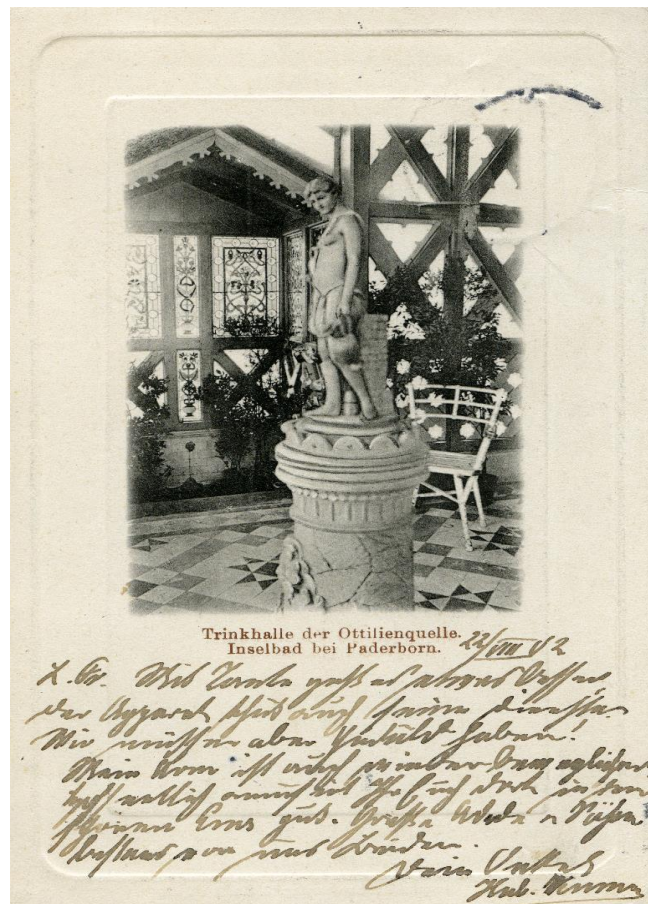 Trinkhalle der Ottilienquelle.
Inselbad bei Paderborn.
22/VIII 02
L. Fr. Mit Tante geht es etwas besser,
der Apparat thut auch seine Dienste.
Wir müssen aber Geduld haben!
Mein Arm ist auch wieder beweglicher
in dem
schönen Ems gut. Grüße Adele u
bestens von uns beiden.
Dein Onkel
Hub.